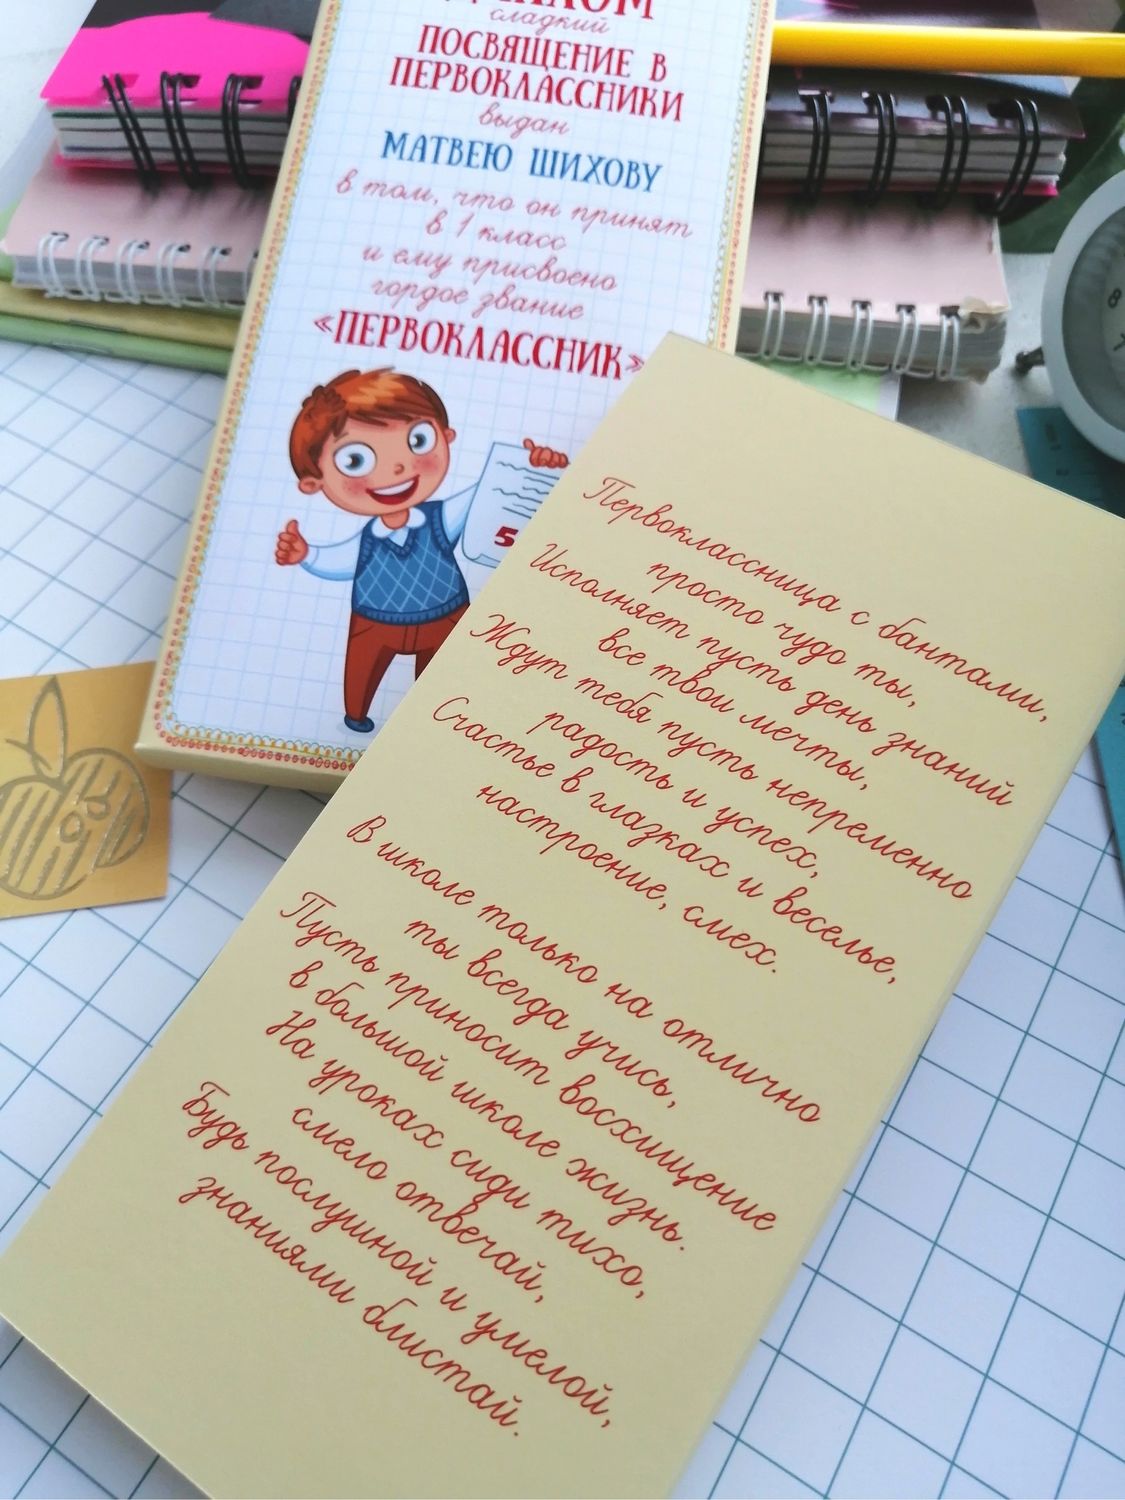 сладкий
ПОСВЯЩЕНИЕ В
ПЕРВОКЛАССНИКИ
выдан
МАТВЕЮ ШИХОВУ
в том, что он принят
в 1 класс
и ему присвоено
гордое звание
«ПЕРВОКЛАССНИК»
5
Первоклассница с бантами,
просто чудо ты,
Исполняет пусть день знаний
все твои мечты,
Ждут тебя пусть непременно
радость и успех,
Счастье в глазках и веселье,
настроение, смех.
В школе только на отлично
ты всегда учись,
Пусть приносит восхищение
в большой школе жизнь.
На уроках сиди тихо,
смело отвечай,
Будь послушной и умелой,
знаниями блистай.
8